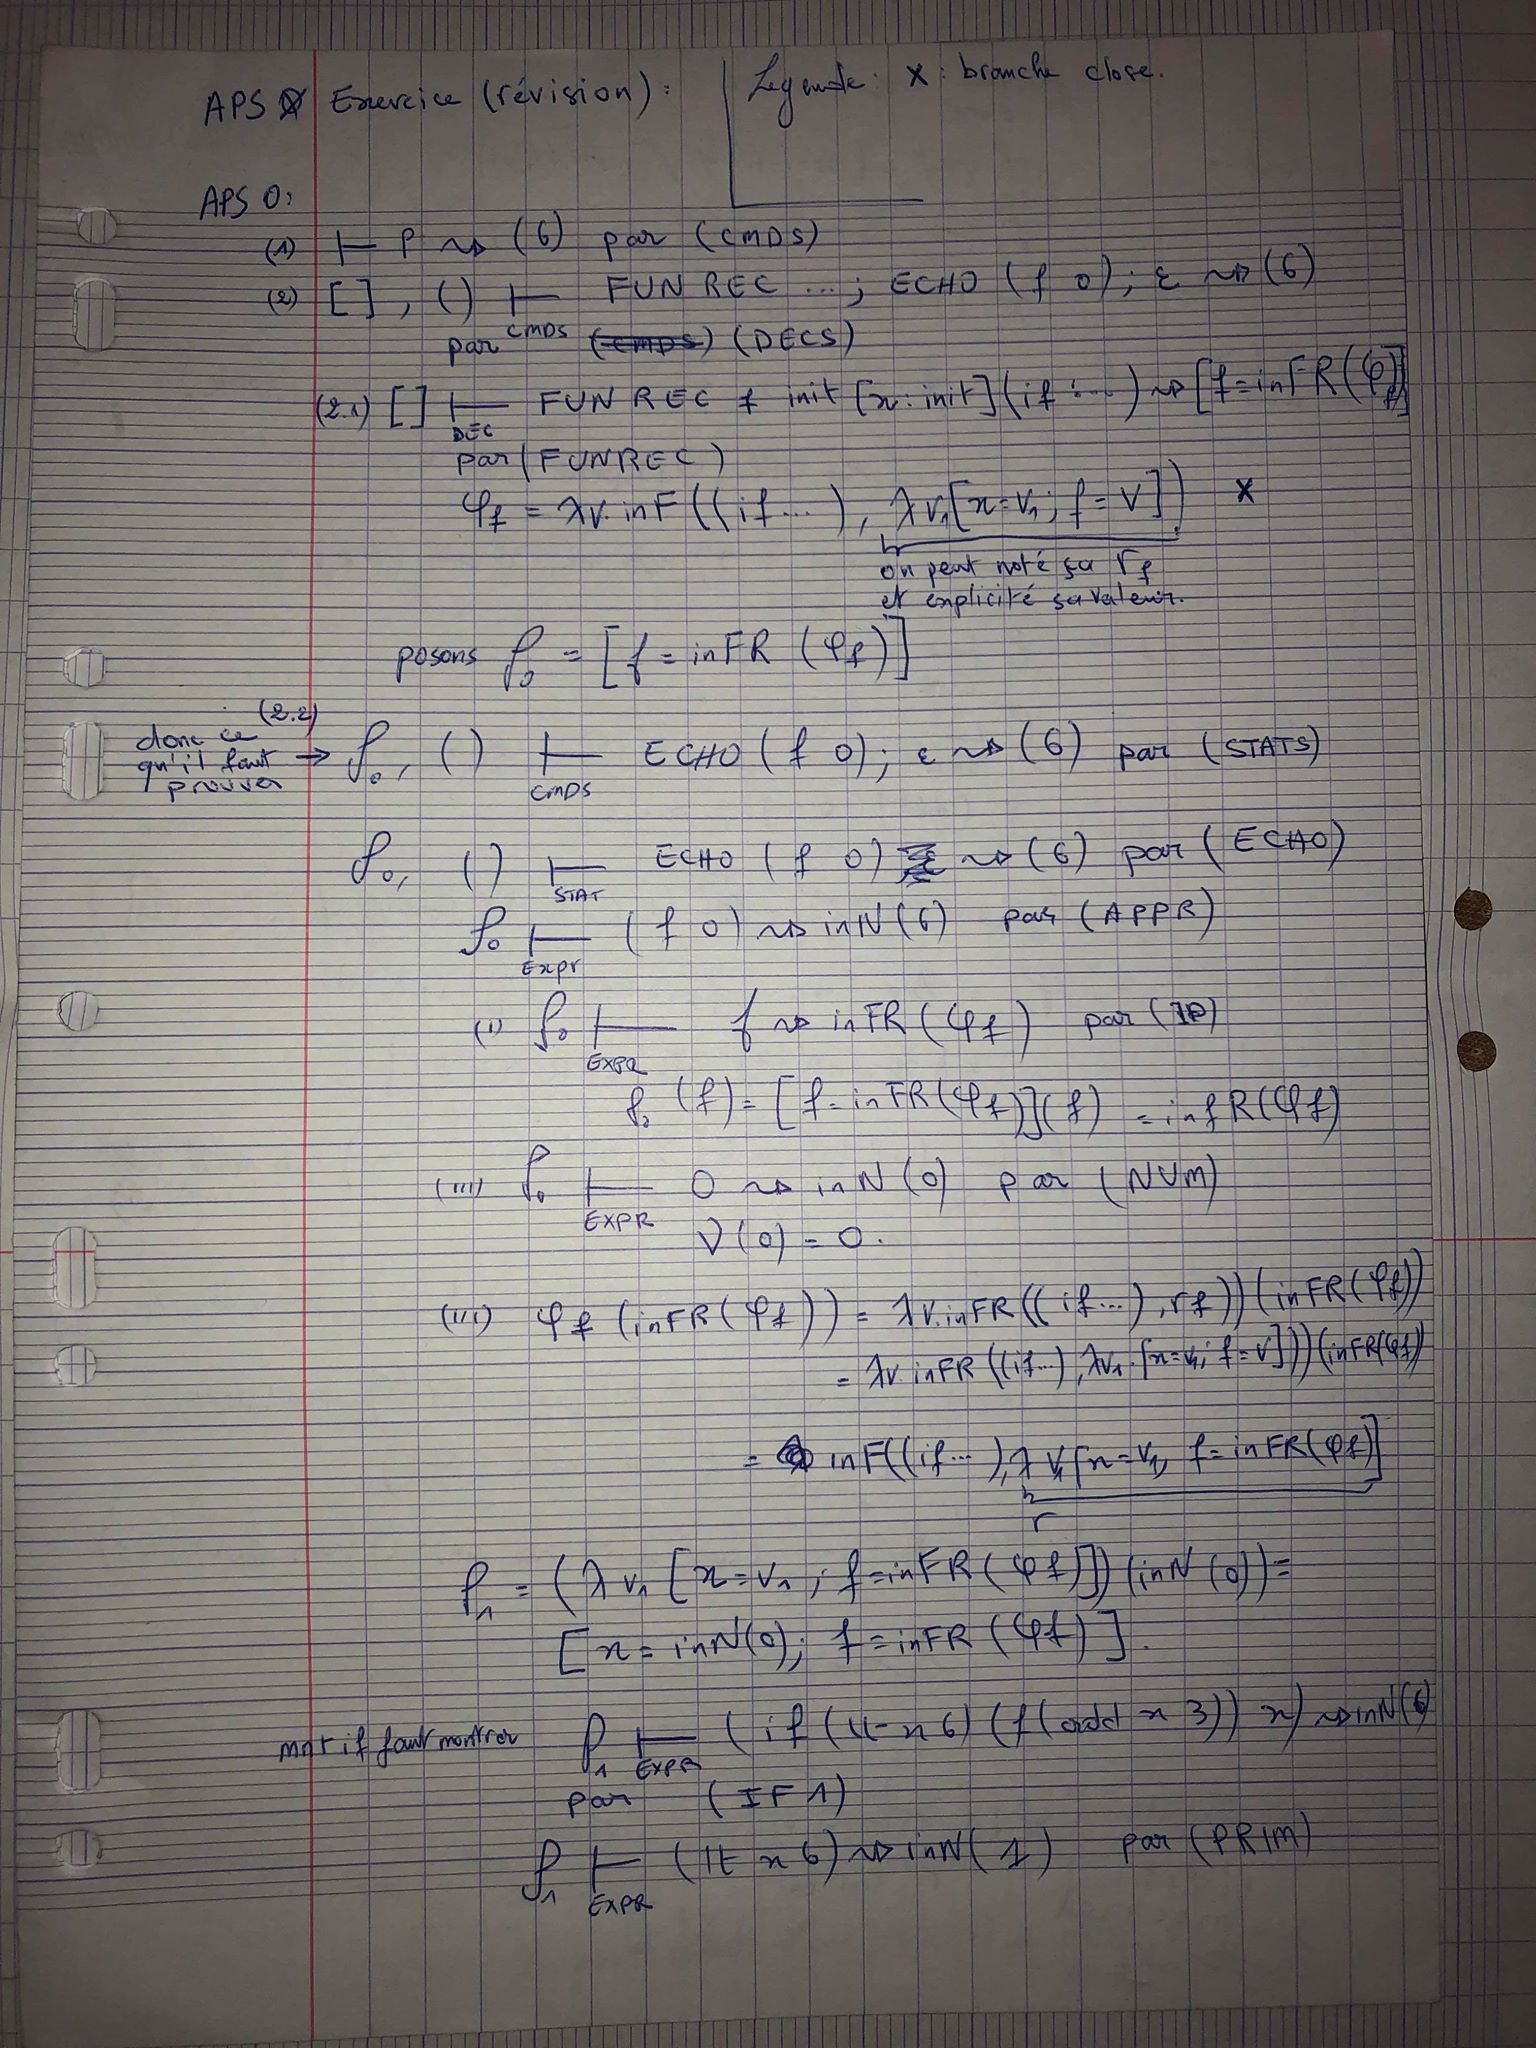 APS Exercice (révision) :
Legende : x : branche close.
APS 0:
(1) ⊢ P ⇝ (6) par (CMDS)
(2) [], () ⊢ FUN REC ...; ECHO (f 0); ε ⇝ (6)
CMDS
par (DECS)
(2.1) [] ⊢ FUN REC f init [x: init] (if ...) ⇝ [f = inFR(φf)]
DEC
par (FUNREC)
φf = λv. inF((if ...), λv1[x=v1; f=v]) x
on peut noté sa rf
et explicité sa valeur.
posons ρ0 = [f = inFR (φf)]
(2.2)
donc ce
qu'il faut
prouver → ρ0, () ⊢ ECHO (f 0); ε ⇝ (6) par (STATS)
CMDS
ρ0, () ⊢ ECHO (f 0) ⇝ (6) par (ECHO)
STAT
ρ0 ⊢ (f 0) ⇝ inN(6) par (APPR)
Expr
(i) ρ0 ⊢ f ⇝ inFR (φf) par (ID)
EXPR
ρ0 (f) = [f = inFR(φf)](f) = infR(φf)
(iii) ρ0 ⊢ 0 ⇝ inN (0) par (NUM)
EXPR
ν(0) = 0.
(iii) φf (inFR(φf)) = λv.inFR((if...), rf))(inFR(φf))
= λv.inFR((if...), λv1.[x=v1; f=v]))(inFR(φf))
= inF((if...), λv1[x=v1, f=inFR(φf)]
r
ρ1 = (λv1 [x=v1; f=inFR(φf)])(inN(0)) =
[x = inN(0); f = inFR (φf)].
mnt il faut montrer ρ1 ⊢ (if (lt x 6) (f (add x 3)) x) ⇝ inN(6)
EXPR
par (IF1)
ρ1 ⊢ (lt x 6) ⇝ inN(1) par (PRIM)
EXPR